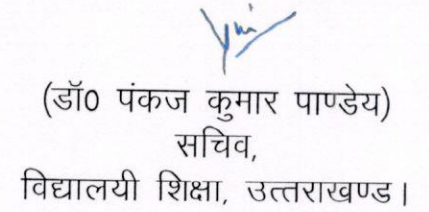 (डॉ0 पंकज कुमार पाण्डेय)
सचिव,
विद्यालयी शिक्षा, उत्तराखण्ड।